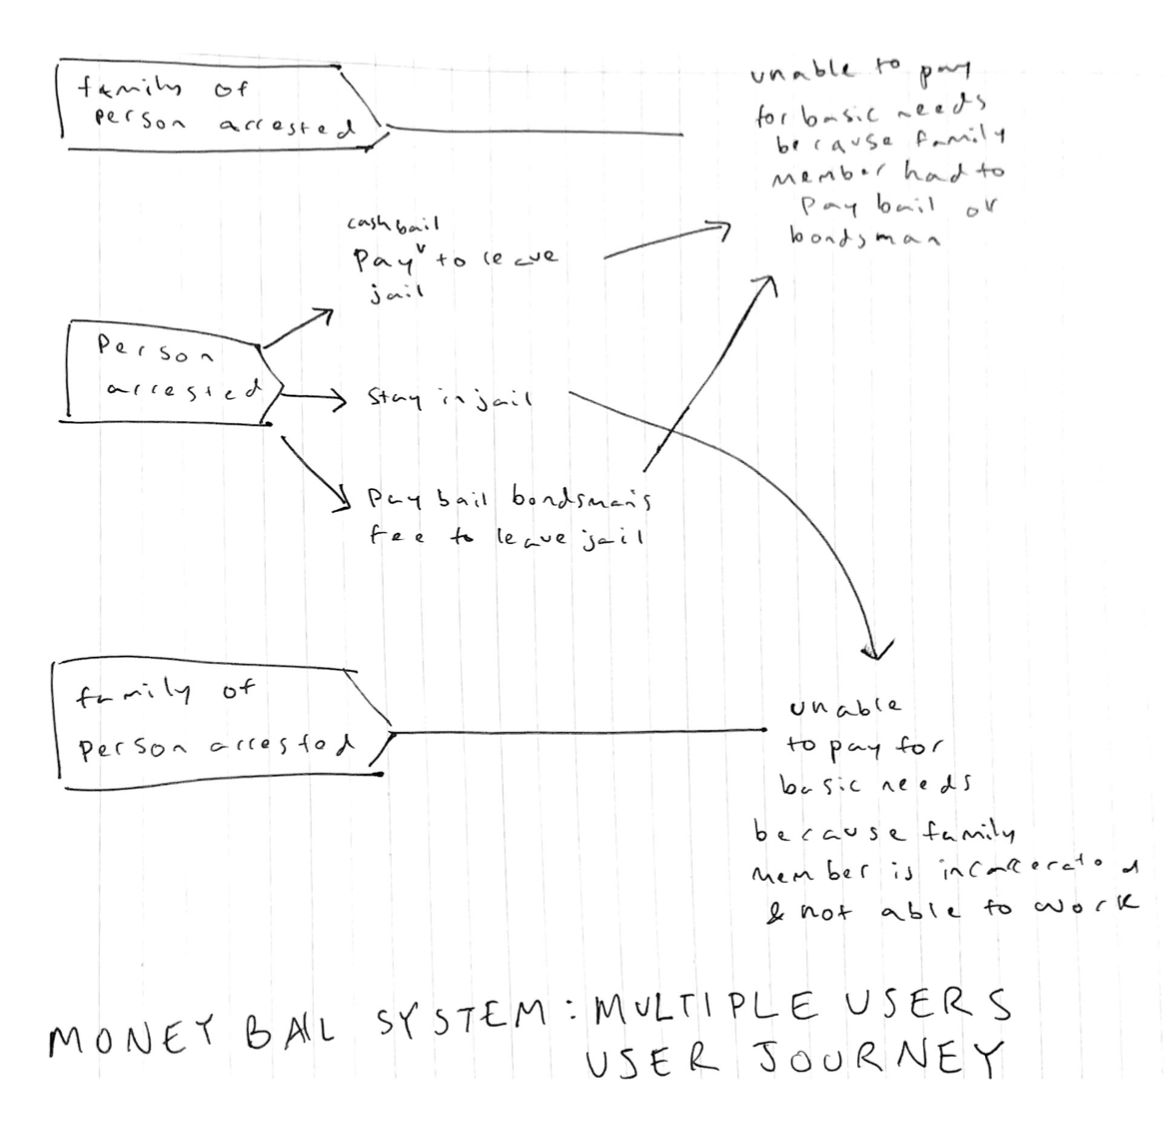 family of
person arrested
unable to pay
for basic needs
because family
member had to
pay bail or
bondsman
cash bail
Pay to leave
jail
Person
arrested
Stay in jail
Pay bail bondsman's
fee to leave jail
family of
person arrested
unable
to pay for
basic needs
because family
member is incarcerated
& not able to work
MONEY BAIL SYSTEM: MULTIPLE USERS
USER JOURNEY